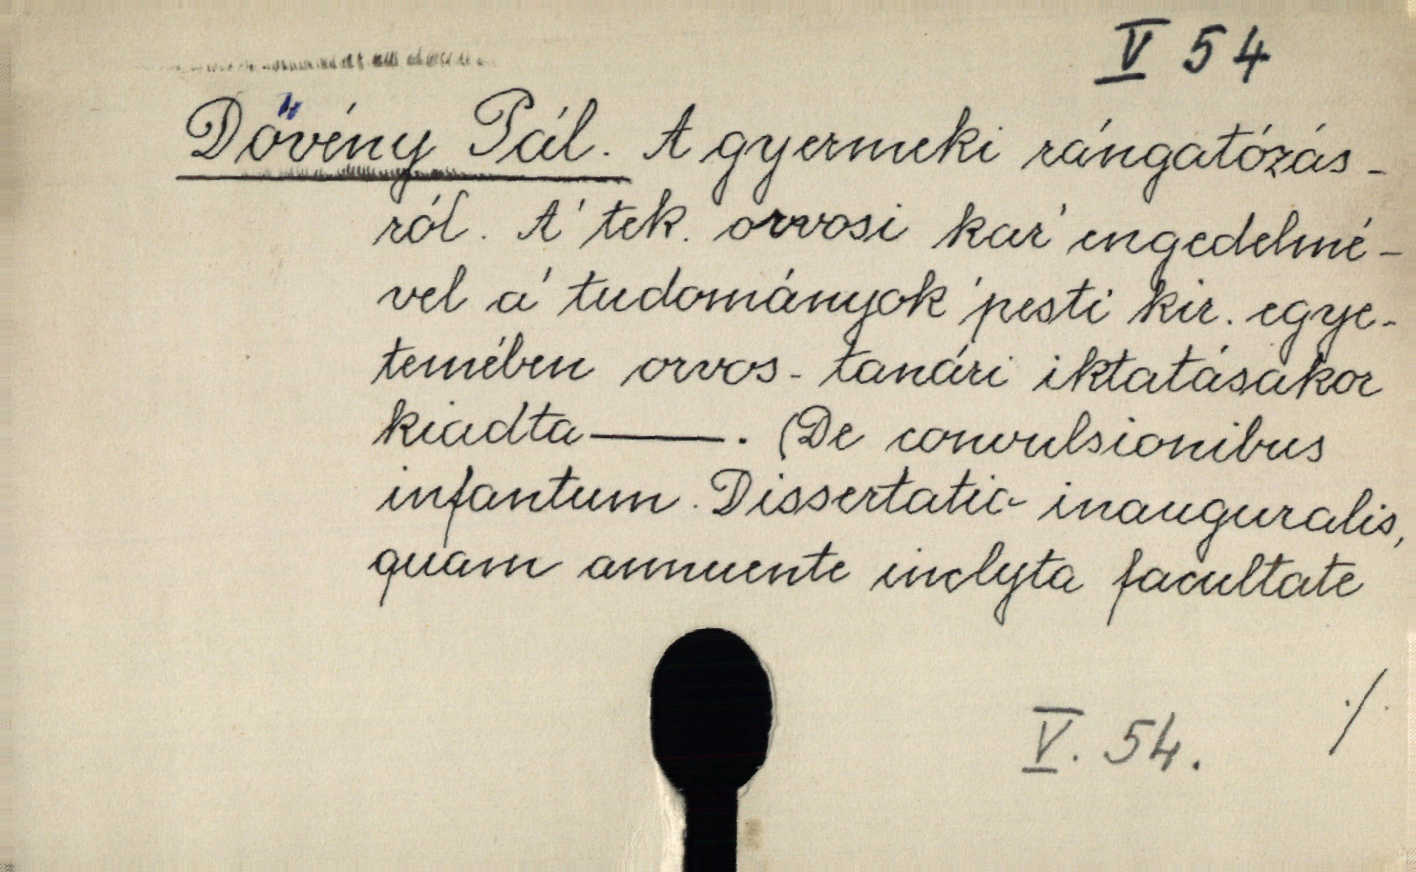 V 54
Dővény Pál. A gyermeki rángatózás-
ról. A' tek. orvosi kar' engedelmé-
vel a' tudományok' pesti kir. egye-
temében orvos-tanári iktatásakor
kiadta ———. (De convulsionibus
infantum. Dissertatio inauguralis,
quam annuente inclyta facultate
V. 54.
./.